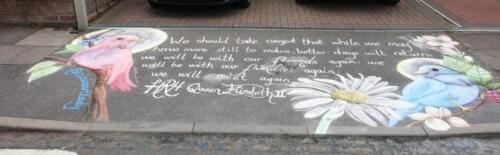 We should take comfort that while we may
have more still to endure, better days will return.
we will be with our friends again, we
will be with our families again,
we will meet again.
HRH Queen Elizabeth II